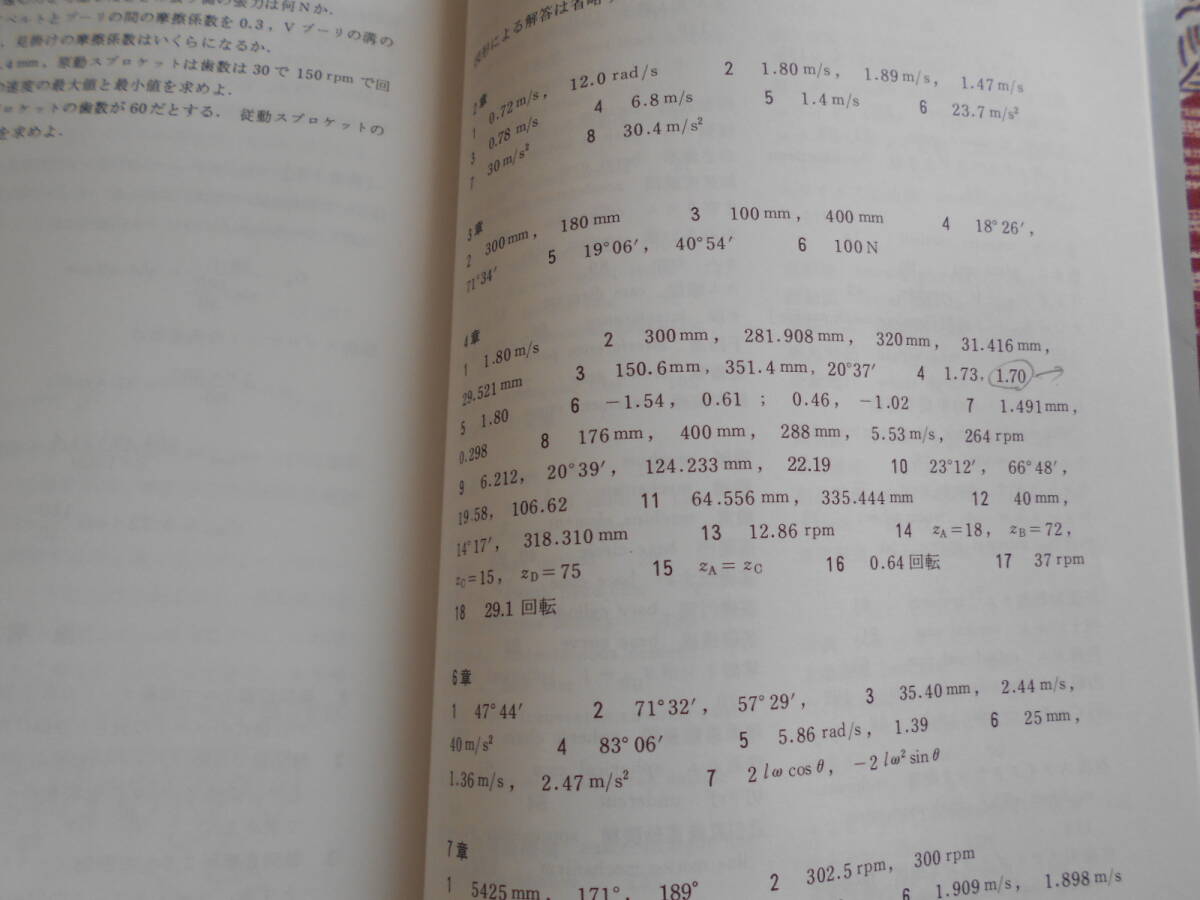 張力は何Nか.
ベルトとプーリの間の摩擦係数を0.3，Vプーリの溝の
，見掛けの摩擦係数はいくらになるか.
.4mm，原動スプロケットは歯数は30で150rpmで回
速度の最大値と最小値を求めよ.
ロケットの歯数が60だとする. 従動スプロケットの
を求めよ.
による解答は省略
2章
1 0.72m/s， 12.0 rad/s 2 1.80m/s， 1.89m/s， 1.47m/s
3 0.78 m/s 4 6.8m/s 5 1.4m/s 6 23.7m/s²
7 30m/s² 8 30.4m/s²
3章
2 300mm， 180mm 3 100mm， 400mm 4 18°26′，
71°34′ 5 19°06′， 40°54′ 6 100N
4章
1 1.80m/s 2 300mm， 281.908mm， 320mm， 31.416mm，
29.521mm 3 150.6mm，351.4mm，20°37′ 4 1.73，1.70
5 1.80 6 −1.54， 0.61 ； 0.46， −1.02 7 1.491mm，
0.298 8 176mm， 400mm， 288mm， 5.53m/s， 264rpm
9 6.212， 20°39′， 124.233mm， 22.19 10 23°12′， 66°48′，
19.58， 106.62 11 64.556mm， 335.444mm 12 40mm，
14°17′， 318.310mm 13 12.86rpm 14 zA=18， zB=72，
zC=15， zD=75 15 zA=zC 16 0.64回転 17 37rpm
18 29.1回転
6章
1 47°44′ 2 71°32′， 57°29′， 3 35.40mm， 2.44m/s，
40m/s² 4 83°06′ 5 5.86rad/s， 1.39 6 25mm，
1.36m/s， 2.47m/s² 7 2lωcosθ， −2lω²sinθ
7章
1 5425mm， 171°， 189° 2 302.5rpm， 300rpm
6 1.909m/s， 1.898m/s